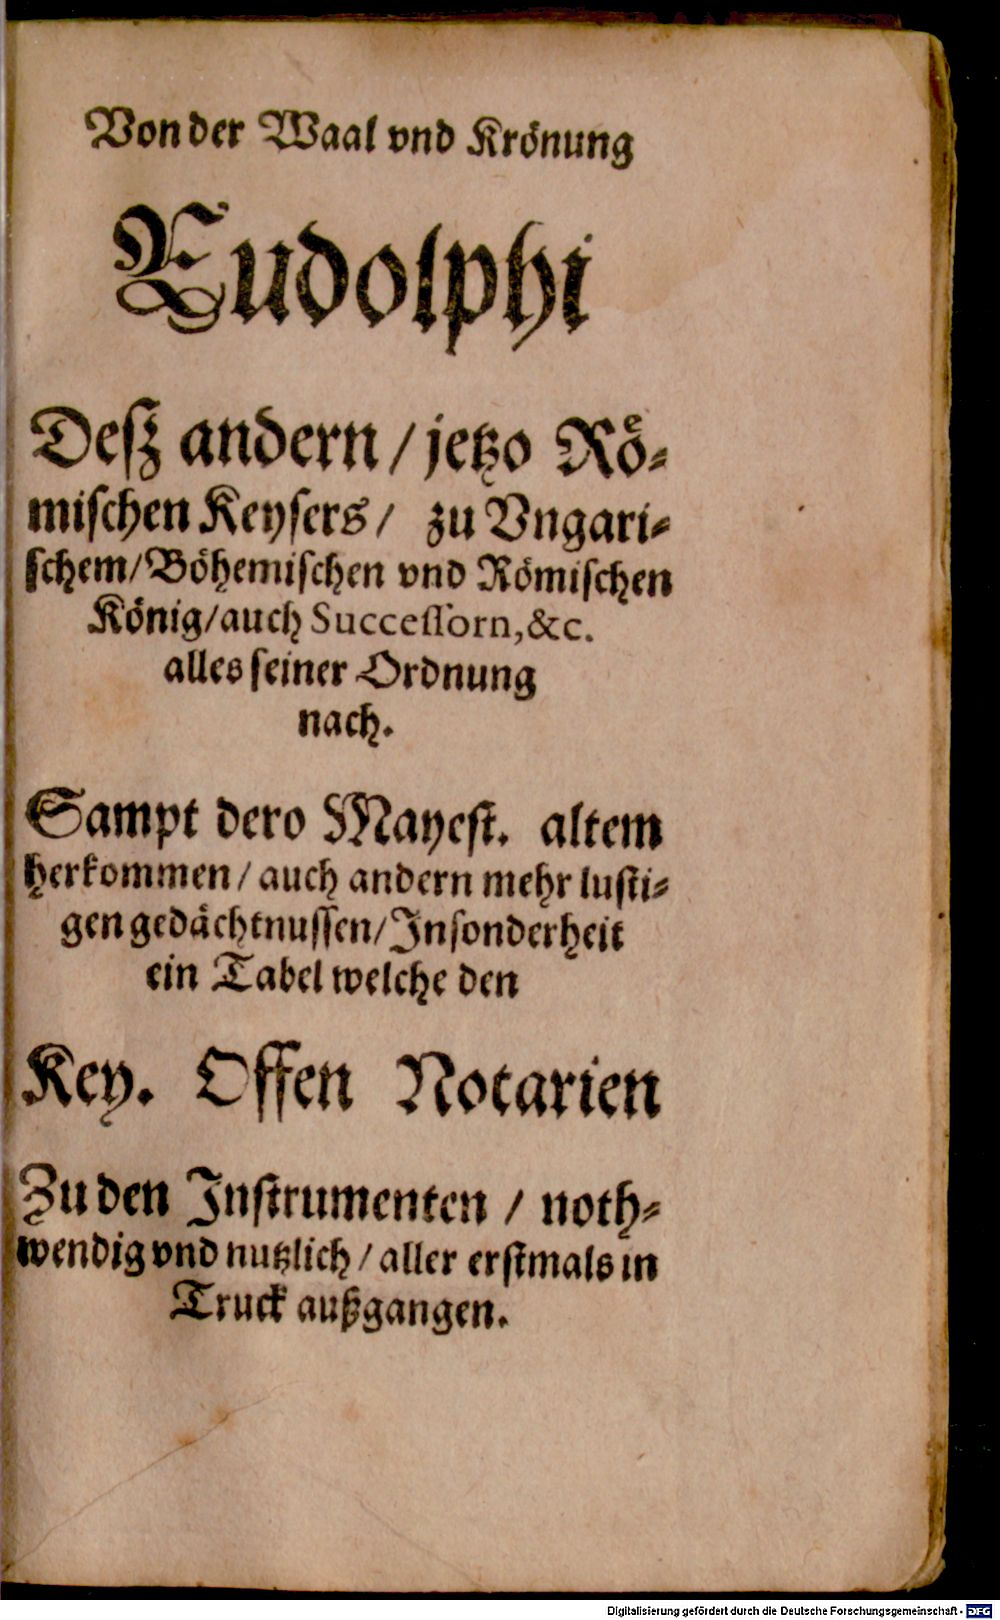 Von der Waal vnd Krönung
Rudolphi
Desz andern / jetzo Rö-
mischen Keysers / zu Vngari-
schem / Böhemischen vnd Römischen
König / auch Successorn, &c.
alles seiner Ordnung
nach.
Sampt dero Mayest. altem
herkommen / auch andern mehr lusti-
gen gedächtnussen / Insonderheit
ein Tabel welche den
Key. Offen Notarien
Zu den Instrumenten / noth-
wendig vnd nutzlich / aller erstmals in
Truck außgangen.
Digitalisierung gefördert durch die Deutsche Forschungsgemeinschaft - DFG